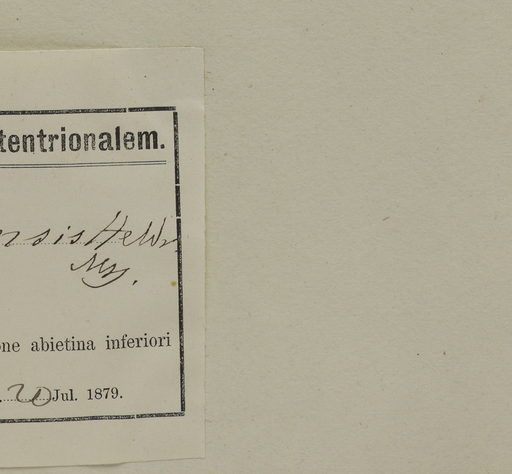 tentrionalem.
nsis Heldr.
Mss.
one abietina inferiori
20 Jul. 1879.